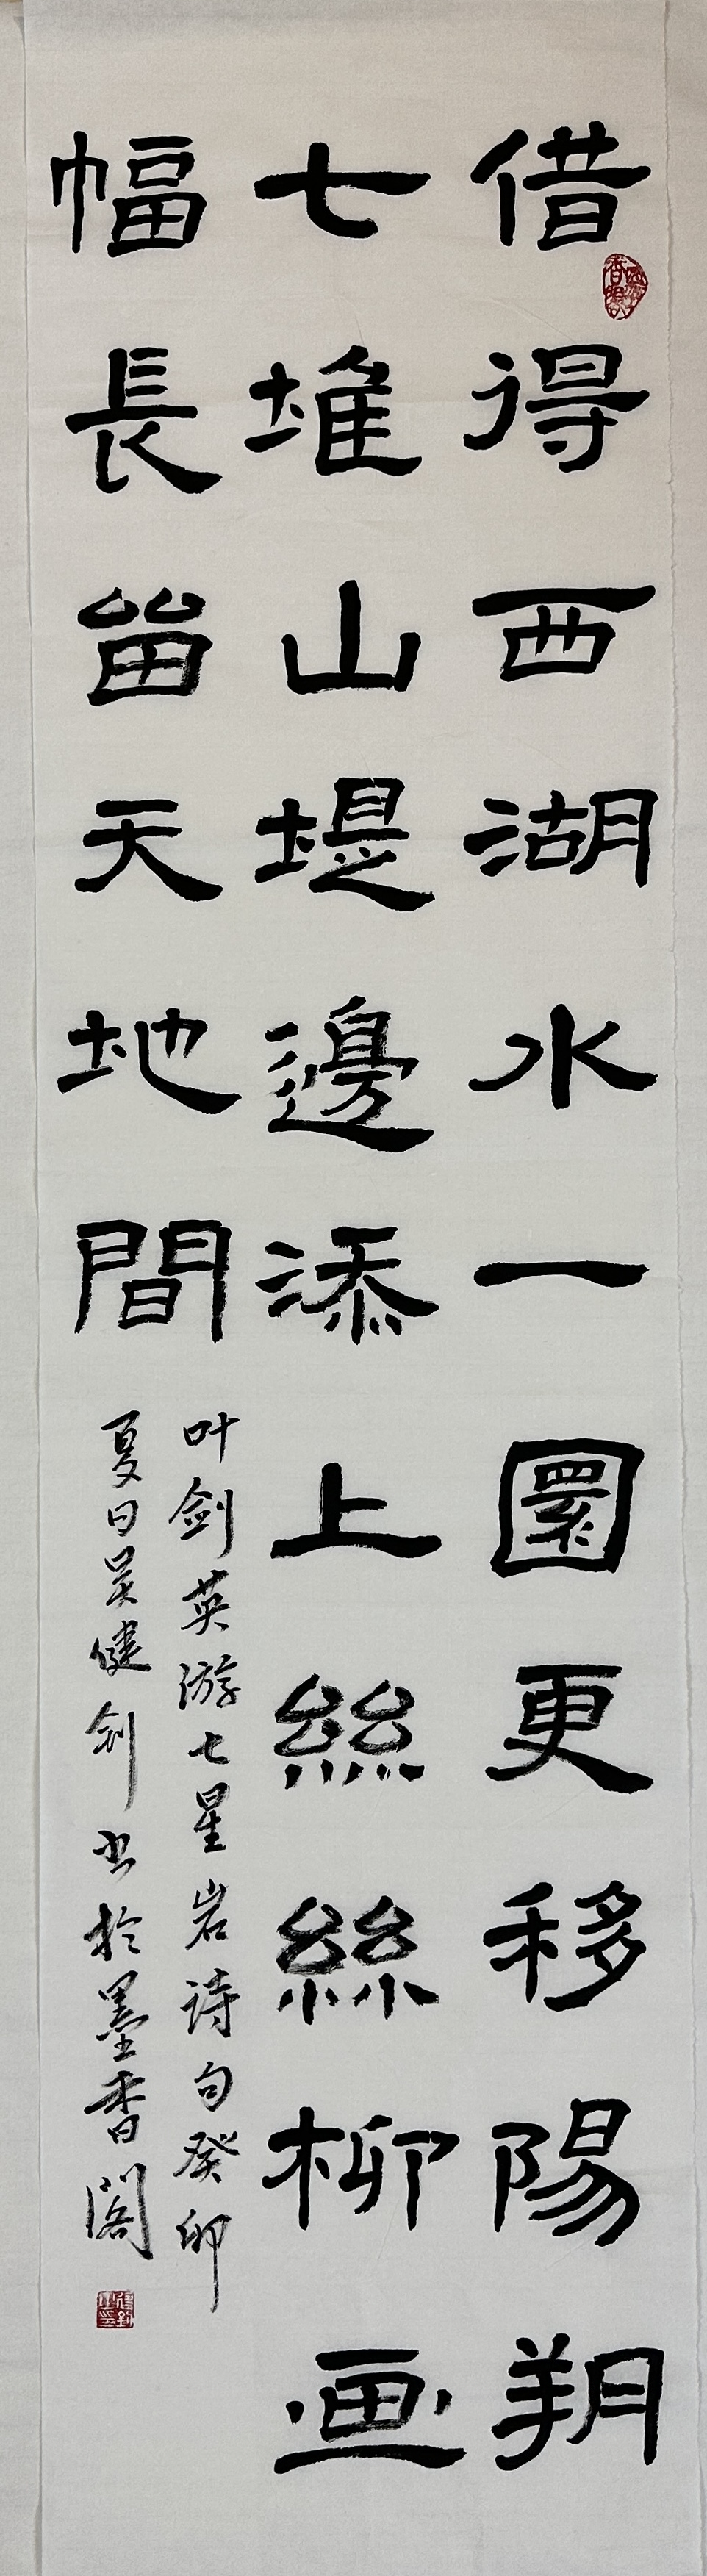 借得西湖水一圜更移陽朔
七堆山堤邊添上絲絲柳画
幅長畄天地間
叶剑英游七星岩诗句癸卯
夏日吴健剑书於墨香阁